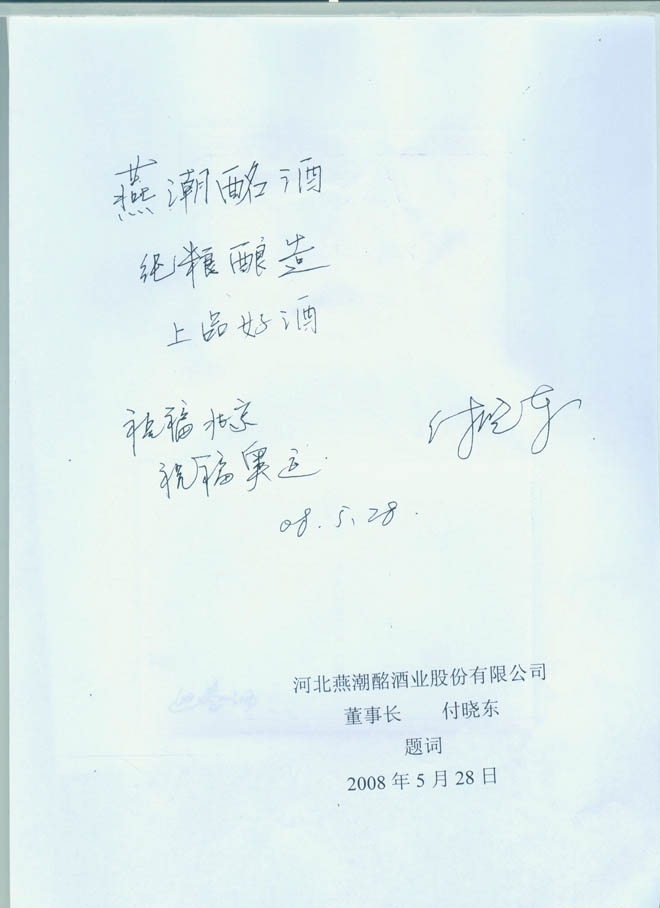 燕潮酩酒
纯粮酿造
上品好酒
祝福北京
祝福奥运.
付晓东
08.5.28.
河北燕潮酩酒业股份有限公司
董事长 付晓东
题词
2008年5月28日